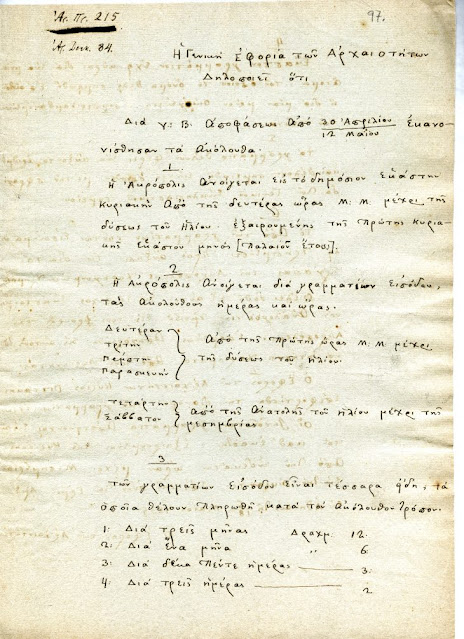 Ἀρ. Πρ. 215
97.
Ἀρ. Διεκ. 84.
Ἡ Γενικὴ Ἐφορία τῶν Ἀρχαιοτήτων
Δηλοποιεῖ ὅτι
Διὰ γ: Β. ἀποφάσεως ἀπὸ 30 Ἀπριλίου ἐκανο-
12 Μαΐου
νίσθησαν τὰ ἀκόλουθα.
1
Ἡ Ἀκρόπολις ἀνοίγεται εἰς τὸ δημόσιον ἑκάστην
Κυριακὴν ἀπὸ τῆς δευτέρας ὥρας Μ. Μ. μέχρι τῆς
δύσεως τοῦ ἡλίου. ἐξαιρουμένης τῆς πρώτης Κυρια-
κῆς ἑκάστου μηνὸς [Παλαιοῦ ἔτους].
2
Ἡ Ἀκρόπολις ἀνοίγεται διὰ γραμματίων εἰσόδου,
τὰς ἀκολούθους ἡμέρας καὶ ὥρας.
Δευτέραν
Τρίτην
Πέμπτην
Παρασκευήν
ἀπὸ τῆς πρώτης ὥρας Μ. Μ. μέχρι
τῆς δύσεως τοῦ ἡλίου.
Τετάρτην
Σάββατον
ἀπὸ τῆς ἀνατολῆς τοῦ ἡλίου μέχρι τῆς
μεσημβρίας.
3
Τῶν γραμματίων εἰσόδου εἶναι τέσσαρα εἴδη, τὰ
ὁποῖα θέλουν πληρωθῆ κατὰ τὸν ἀκόλουθον τρόπον.
1: Διὰ τρεῖς μῆνας Δραχμ. 12.
2: Διὰ ἕνα μῆνα " 6
3: Διὰ δέκα πέντε ἡμέρας 3.
4: Διὰ τρεῖς ἡμέρας 2